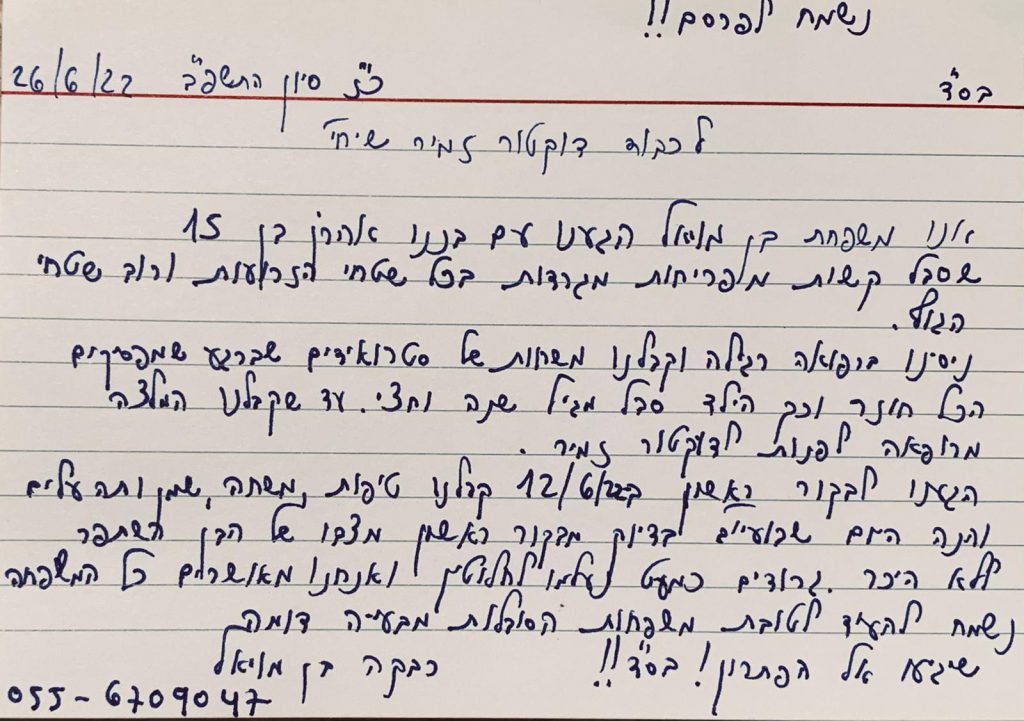 נשמח לפרסם!!
בס"ד כ"ז סיון התשפ"ב 26/6/22
לכבוד דוקטור זמיר שיחי'
אנו משפחת בן מויאל הגענו עם בננו אהרן בן 15
שסבל קשות מפריחות מגרדות בכל שטחי הזרועות ורוב שטחי
הגוף.
ניסינו ברפואה רגילה וקבלנו משחות של סטרואידים שברגע שמפסיקים
הכל חוזר וכך הילד סבל מגיל שנה וחצי. עד שקבלנו המלצה
מרופאה לפנות לדוקטור זמיר.
הגענו לבקור ראשון ב12/6/22 קבלנו טיפות, משחה, שמן ותה עלים
והנה היום שבועיים בדיוק מבקור ראשון מצבו של הבן השתפר
ללא היכר. גרודים כמעט נעלמו לחלוטין ואנחנו מאושרים כל המשפחה
נשמח להעיד לטובת משפחות הסובלות מבעייה דומה
שיגעו אל הפתרון! בס"ד!! רבקה בן מויאל
055-6709047